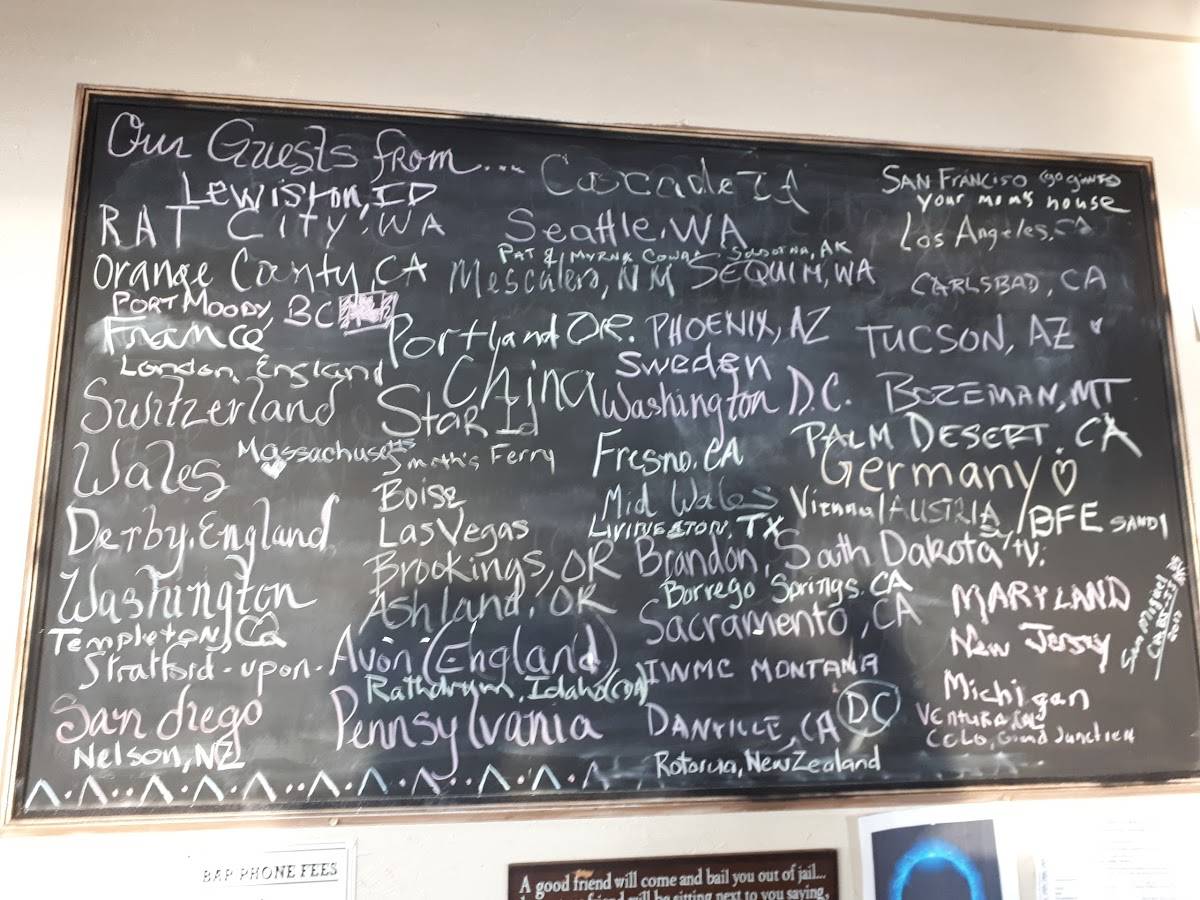 Our Guests from....
Lewiston, ID
RAT City, WA
Orange County, CA
PORT MOODY, BC
France
London, England
Switzerland
Wales
Massachusetts
Derby, England
Washington
Templeton, Ca
Stratford-upon-Avon (England)
San diego
Nelson, NZ
Cascade Id
Seattle, WA
PAT & MYRNA Soldotna, AK
Mescalero, NM
SEQUIM, WA
Portland OR.
PHOENIX, AZ
China
Sweden
Star Id
Washington D.C.
Smith's Ferry
Fresno, CA
Boise
Mid Wales
Las Vegas
LIVINGSTON, TX
Brookings, OR
Brandon, South Dakota
Ashland, OR
Borrego Springs, CA
Sacramento, CA
Rathdrum, Idaho (CDA)
IWMC MONTANA
Pennsylvania
DANVILLE, CA
DC
Rotorua, New Zealand
SAN FRANCISO (go giants)
your mom's house
Los Angeles, CA
CARLSBAD, CA
TUCSON, AZ
BOZEMAN, MT
PALM DESERT, CA
Germany
Vienna/AUSTRIA
BFE SANDI
MARYLAND
New Jersey
San Miguel
Michigan
VENTURA,
COLO, Grand Junction
BAR PHONE FEES
A good friend will come and bail you out of jail...
friend will be sitting next to you saying,